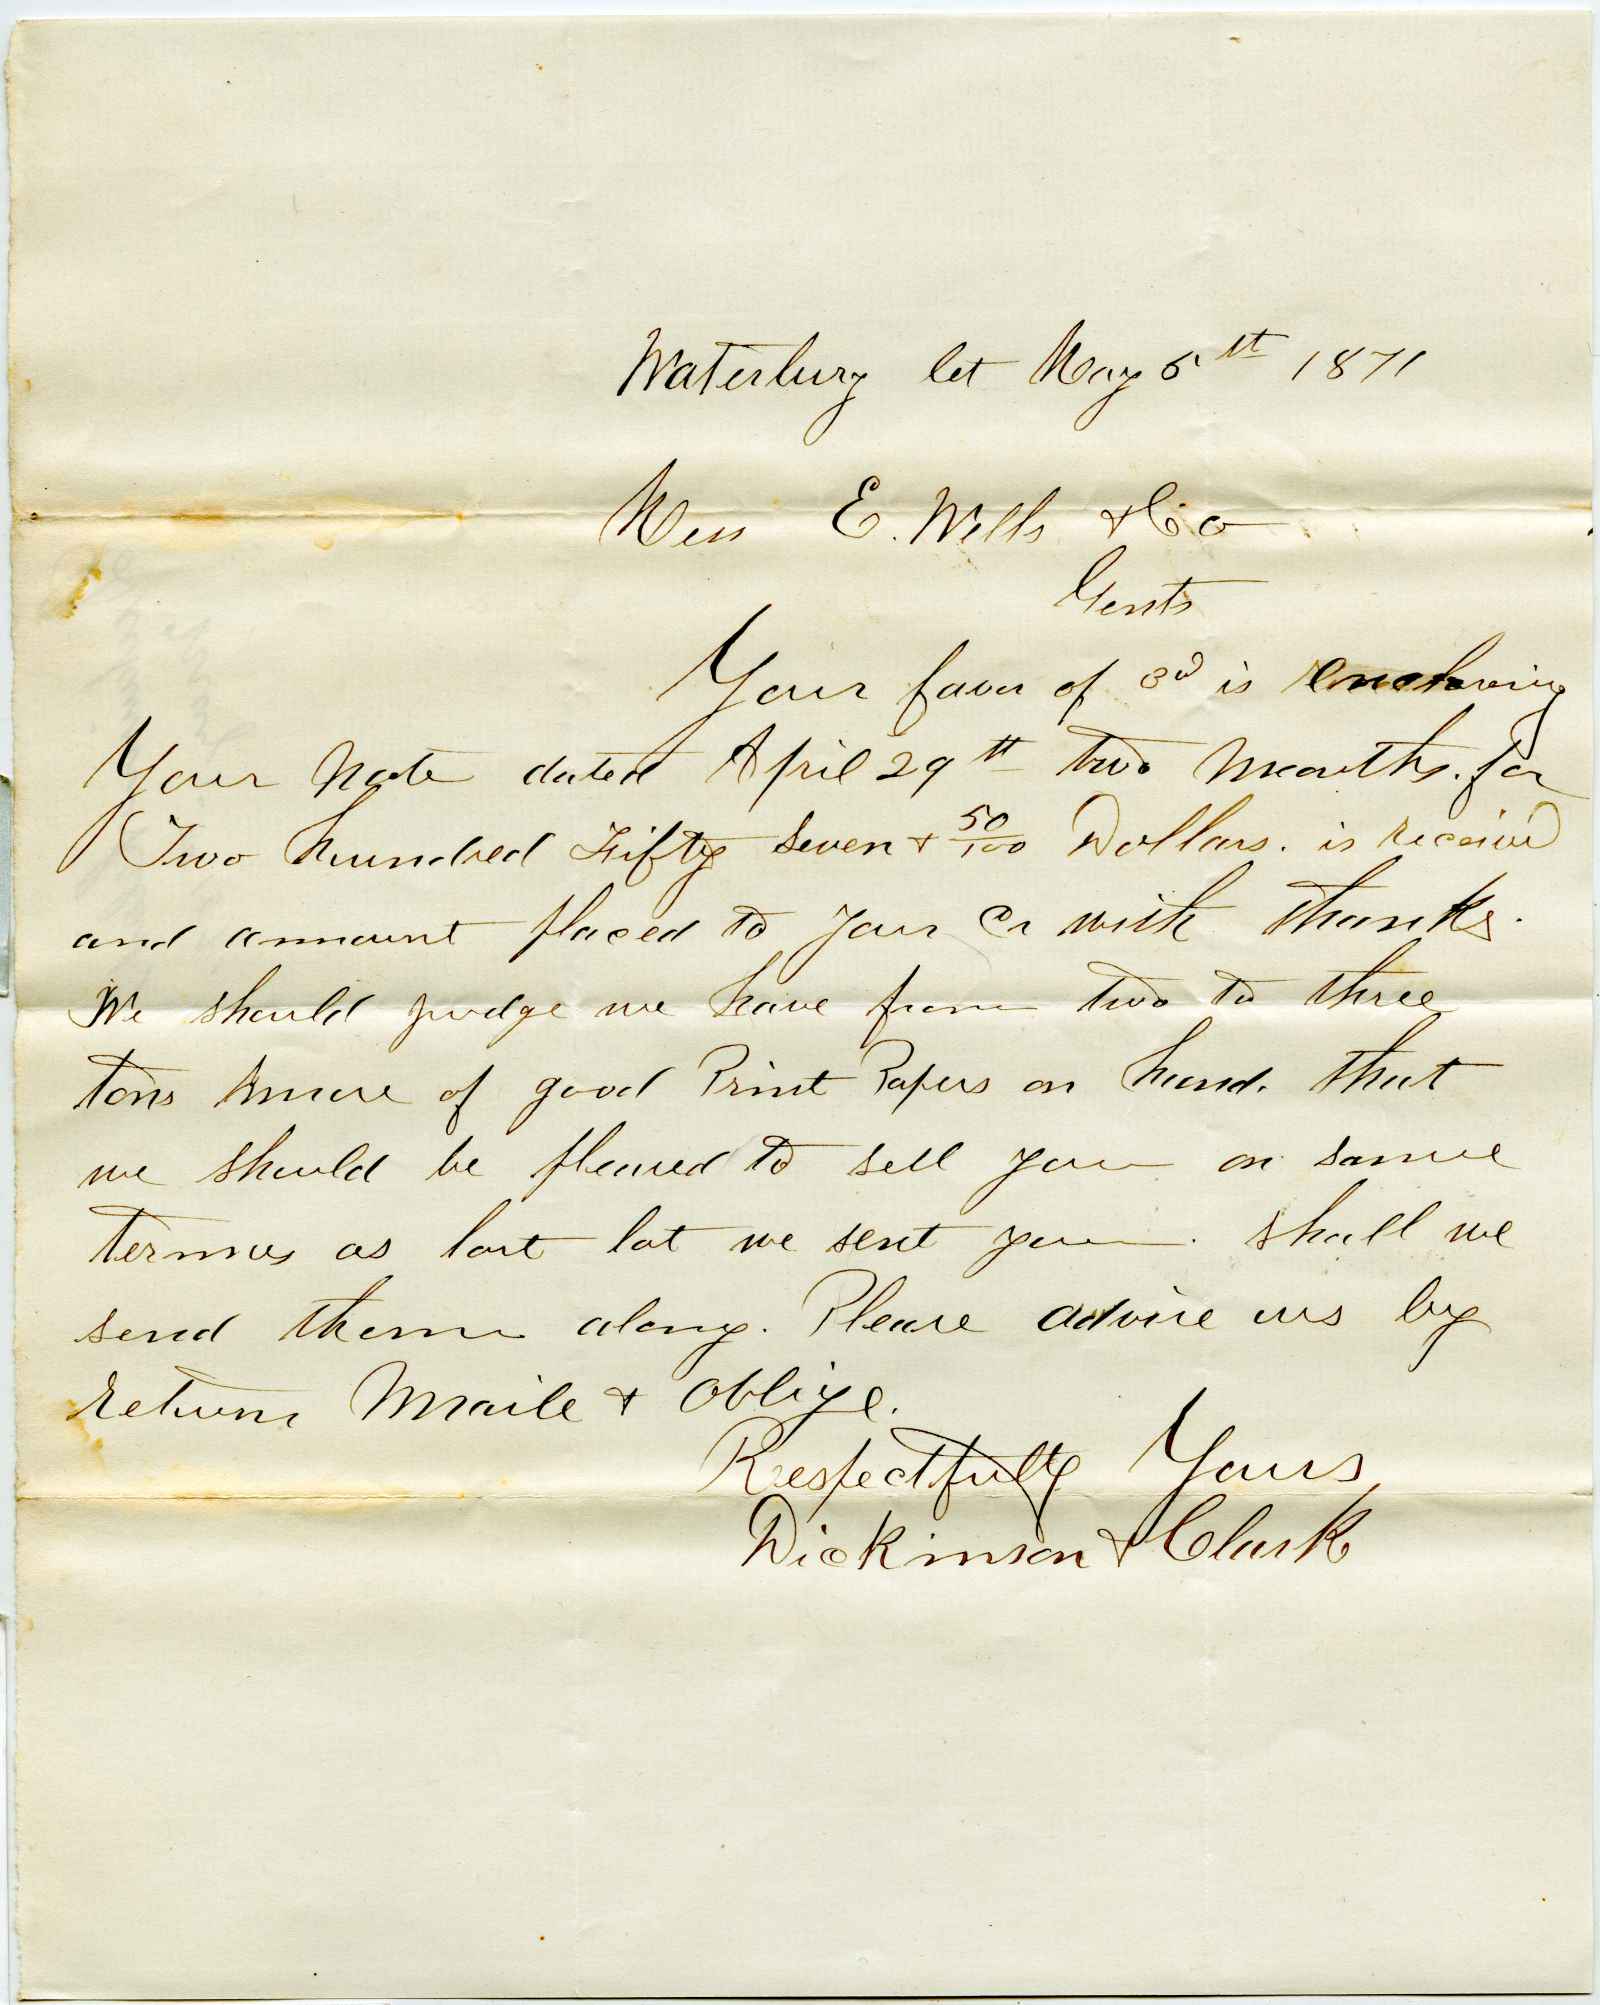 Waterbury Ct May 5th 1871
Mess E. Wells & Co
Gents
Your favor of 3d is enclosing
Your Note dated April 29th two Months. for
Two hundred Fifty Seven & 50/100 Dollars. is receivd
and ammount placed to your Cr with thanks.
We should judge we have from two to three
tons more of good Print Papers on hand. that
we should be pleased to sell you on same
terms as last lot we sent you. shall we
send them along. Please advise us by
return Maile & Oblige.
Respectfully Yours,
Dickinson & Clark